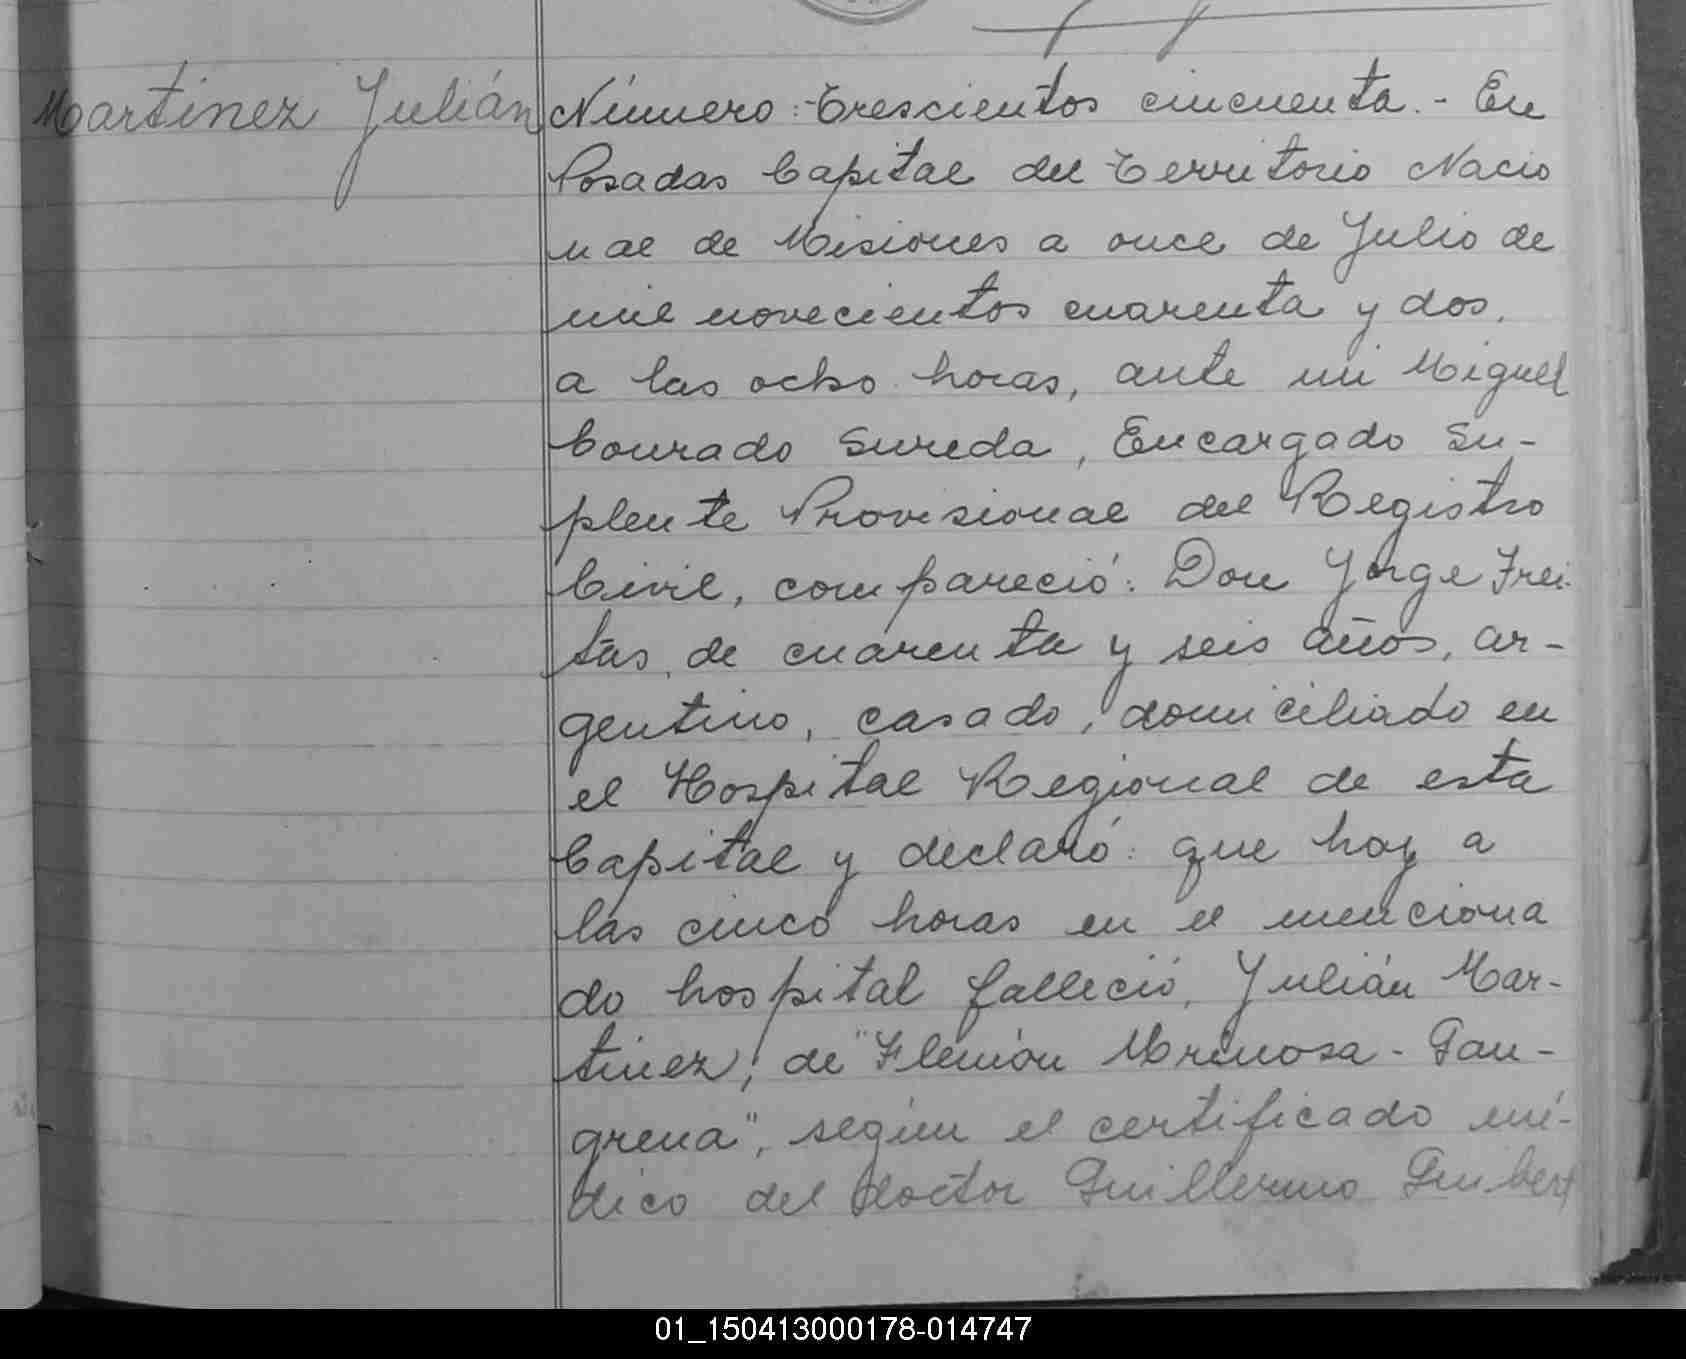 Martinez Julián
Número: Trescientos cincuenta. - En
Posadas Capital del Territorio Nacio
nal de Misiones a once de Julio de
mil novecientos cuarenta y dos,
a las ocho horas, ante mi Miguel
Conrado Sureda, Encargado Su-
plente Provisional del Registro
Civil, compareció: Don Jorge Frei-
tas, de cuarenta y seis años, ar-
gentino, casado, domiciliado en
el Hospital Regional de esta
Capital y declaró: que hoy a
las cinco horas en el menciona
do hospital falleció, Julián Mar-
tinez, de "Flemón Urinosa - Gan-
grena", según el certificado mé-
dico del doctor Guillermo Guibert
01_150413000178-014747